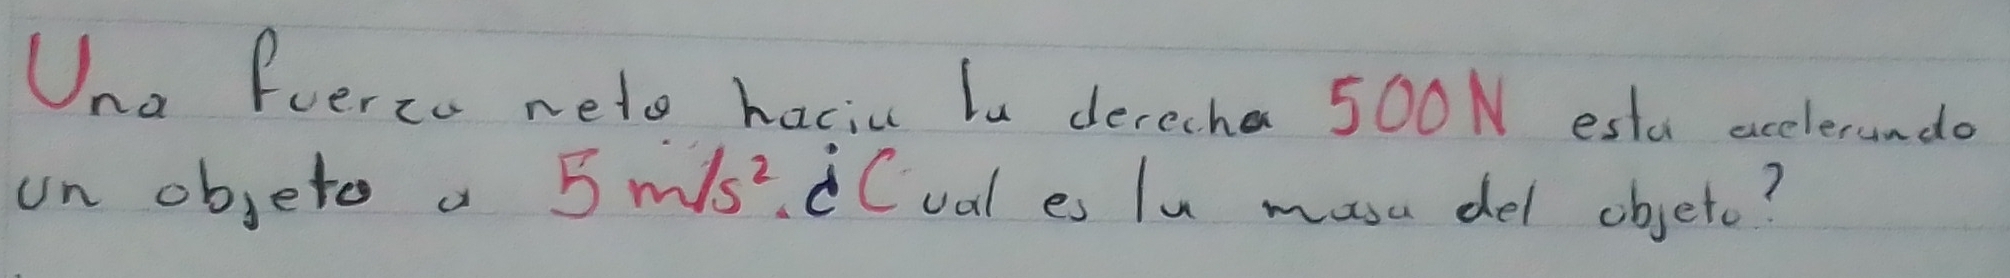 Una fuerza neta hacia la derecha 500N esta acelerando
un objeto a 5 m/s². ¿Cual es la masa del objeto?